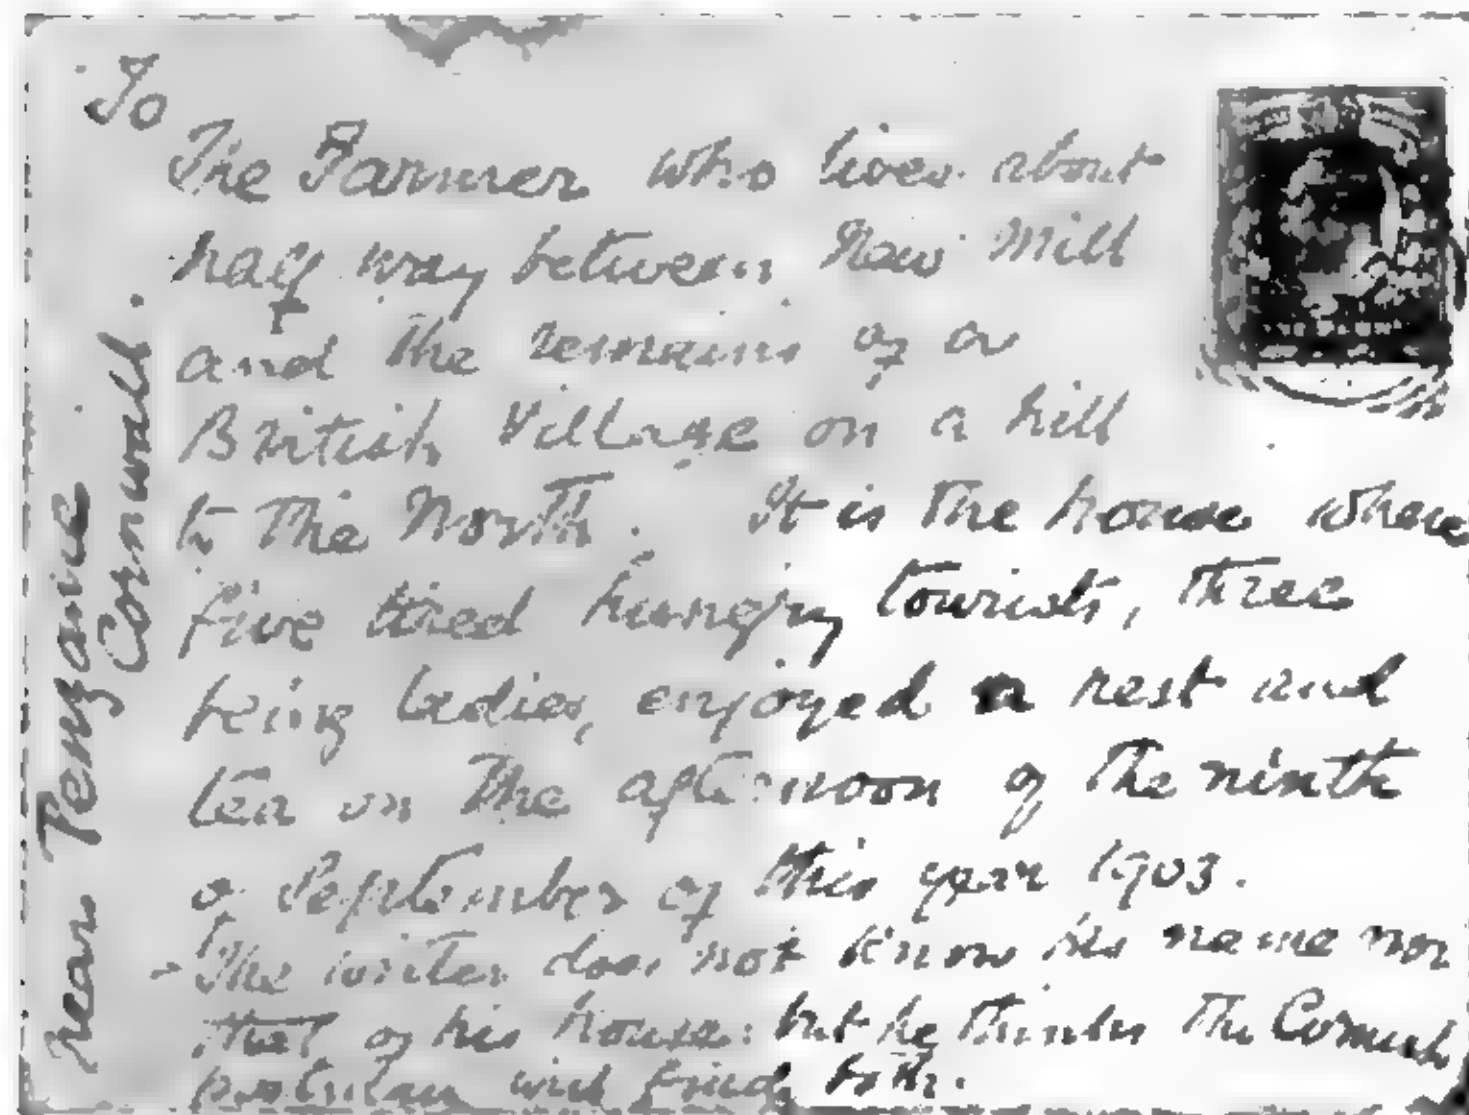 To
The Farmer who lives about
half way between New Mill
and the remains of a
British Village on a hill
to the North. It is the house where
five tired hungry tourists, three
being ladies, enjoyed a rest and
tea on the afternoon of the ninth
o September of this year 1903.
- The writer does not know his name nor
that of his house: but he thinks the Cornish
postman will find both.
near Penzance
Cornwall.